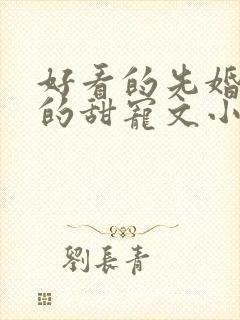 好看的先婚
的甜寵文小
劉長青